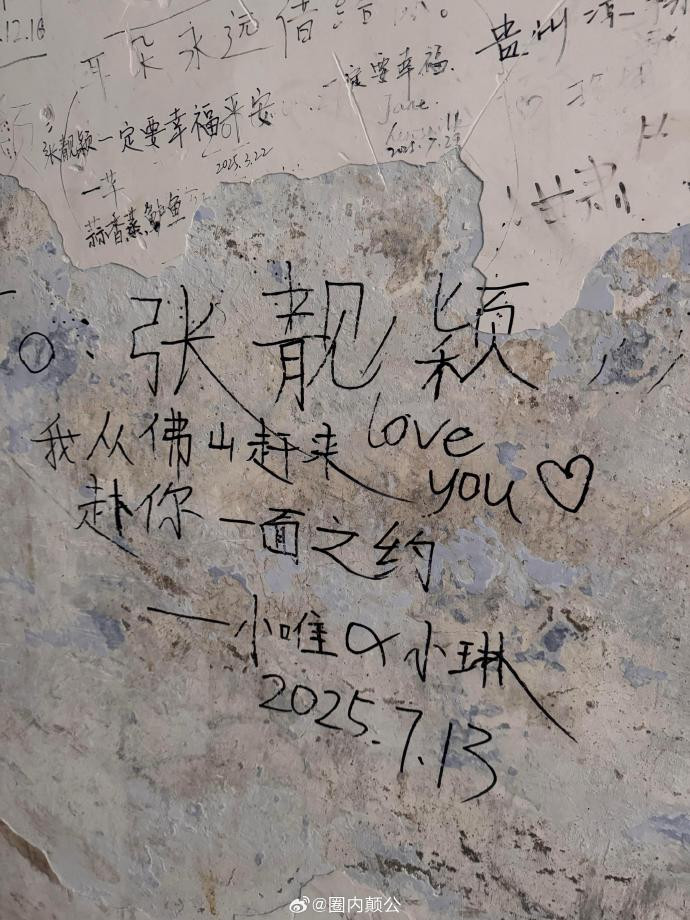 .12.16
耳朵永远借给你。
贵州
一定要幸福.
Jane.
张靓颖一定要幸福平安
2025.3.22
2025.7.27
一芊
蒜香蒸鲈鱼
甘肃
To: 张靓颖
我从佛山赶来 love
赴你一面之约 you♡
——小唯 & 小琳
2025.7.13
@圈内颠公